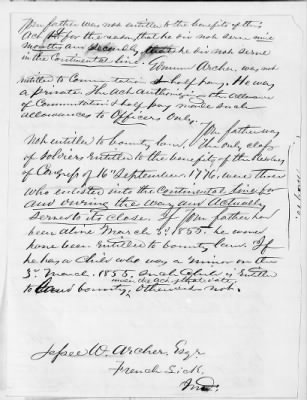 Your father was not entitled to the benefits of the
Act for the reason that he did not serve nine
months and secondly that he did not serve
in the Continental Line. Edmund Archer was not
entitled to Commutation & half pay. He was
a private. The Act authorising the allowance
of Commutation & half pay made such
allowances to Officers Only.
Your father was
not entitled to bounty land. The only class
of Soldiers Entitled to the benefits of the
of Congress of 16th September 1776, were those
who enlisted into the Continental Line for
and during the war, and Actually
Served to its close. If Your father had
been alive March 3d 1855, he would
have been Entitled to bounty land. If
he has a Child who was a minor on the
3d March 1855, Such Child is Entitled
under the Act of that date
to Land bounty, Otherwise not.
Jesse W. Archer, Esqr
French Lick,
Ind.